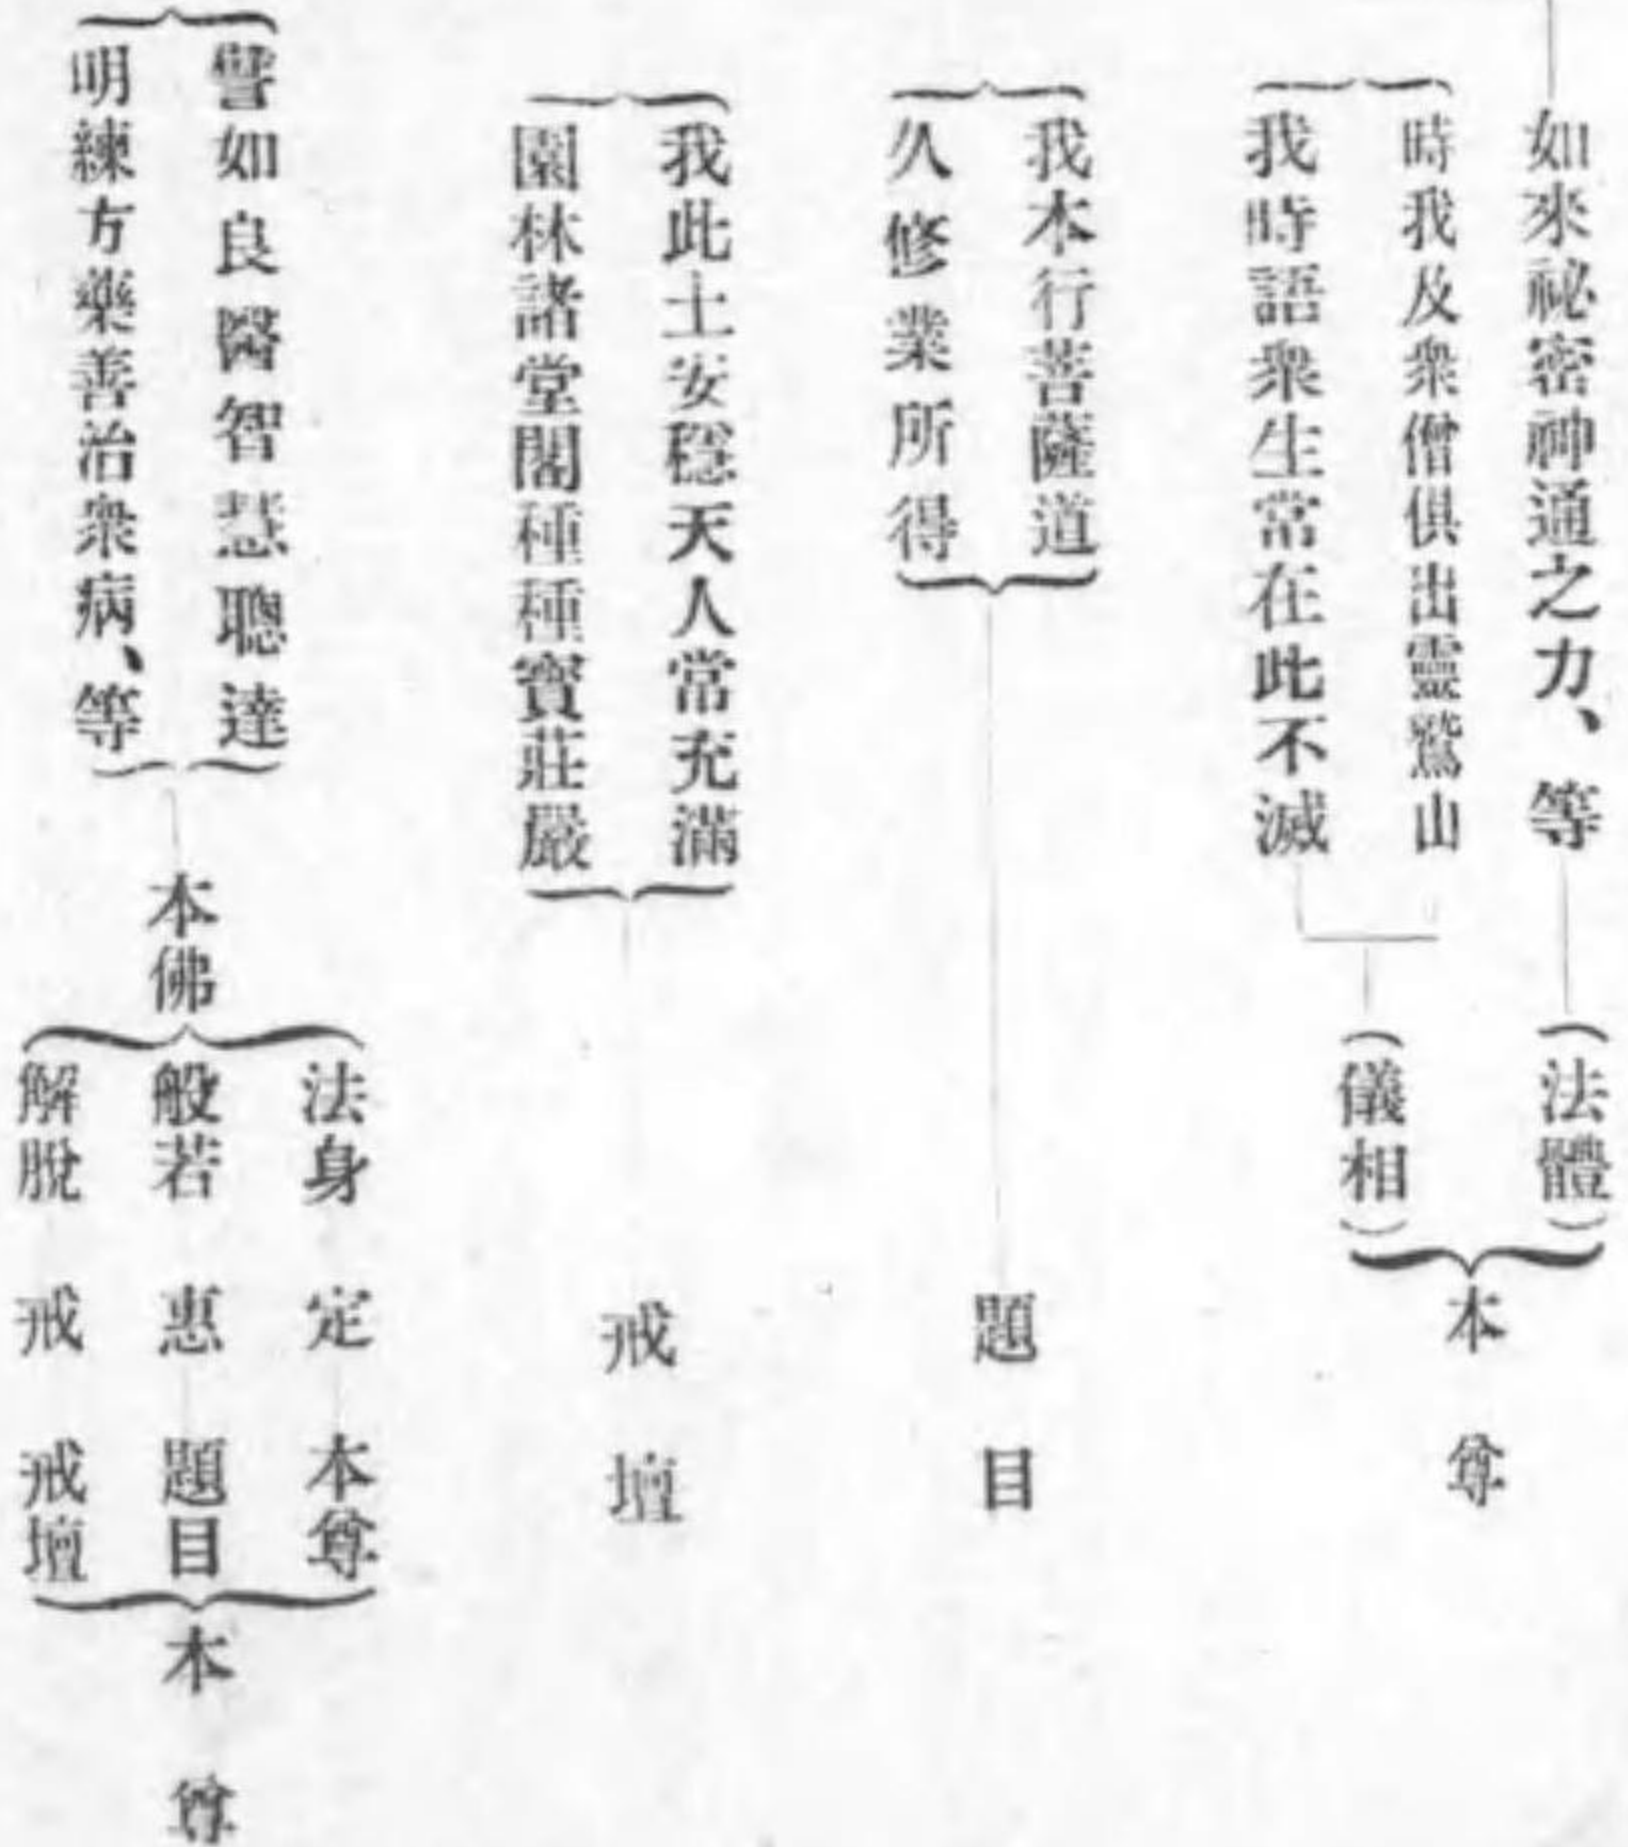 如來祕密神通之力、等
(法體)
時我及衆僧俱出靈鷲山
我時語衆生常在此不滅
(儀相)
本尊
我本行菩薩道
久修業所得
題目
我此土安穩天人常充滿
園林諸堂閣種種寶莊嚴
戒壇
譬如良醫智慧聰達
明練方藥善治衆病、等
本佛
法身 定 本尊
般若 惠 題目
解脫 戒 戒壇
本尊